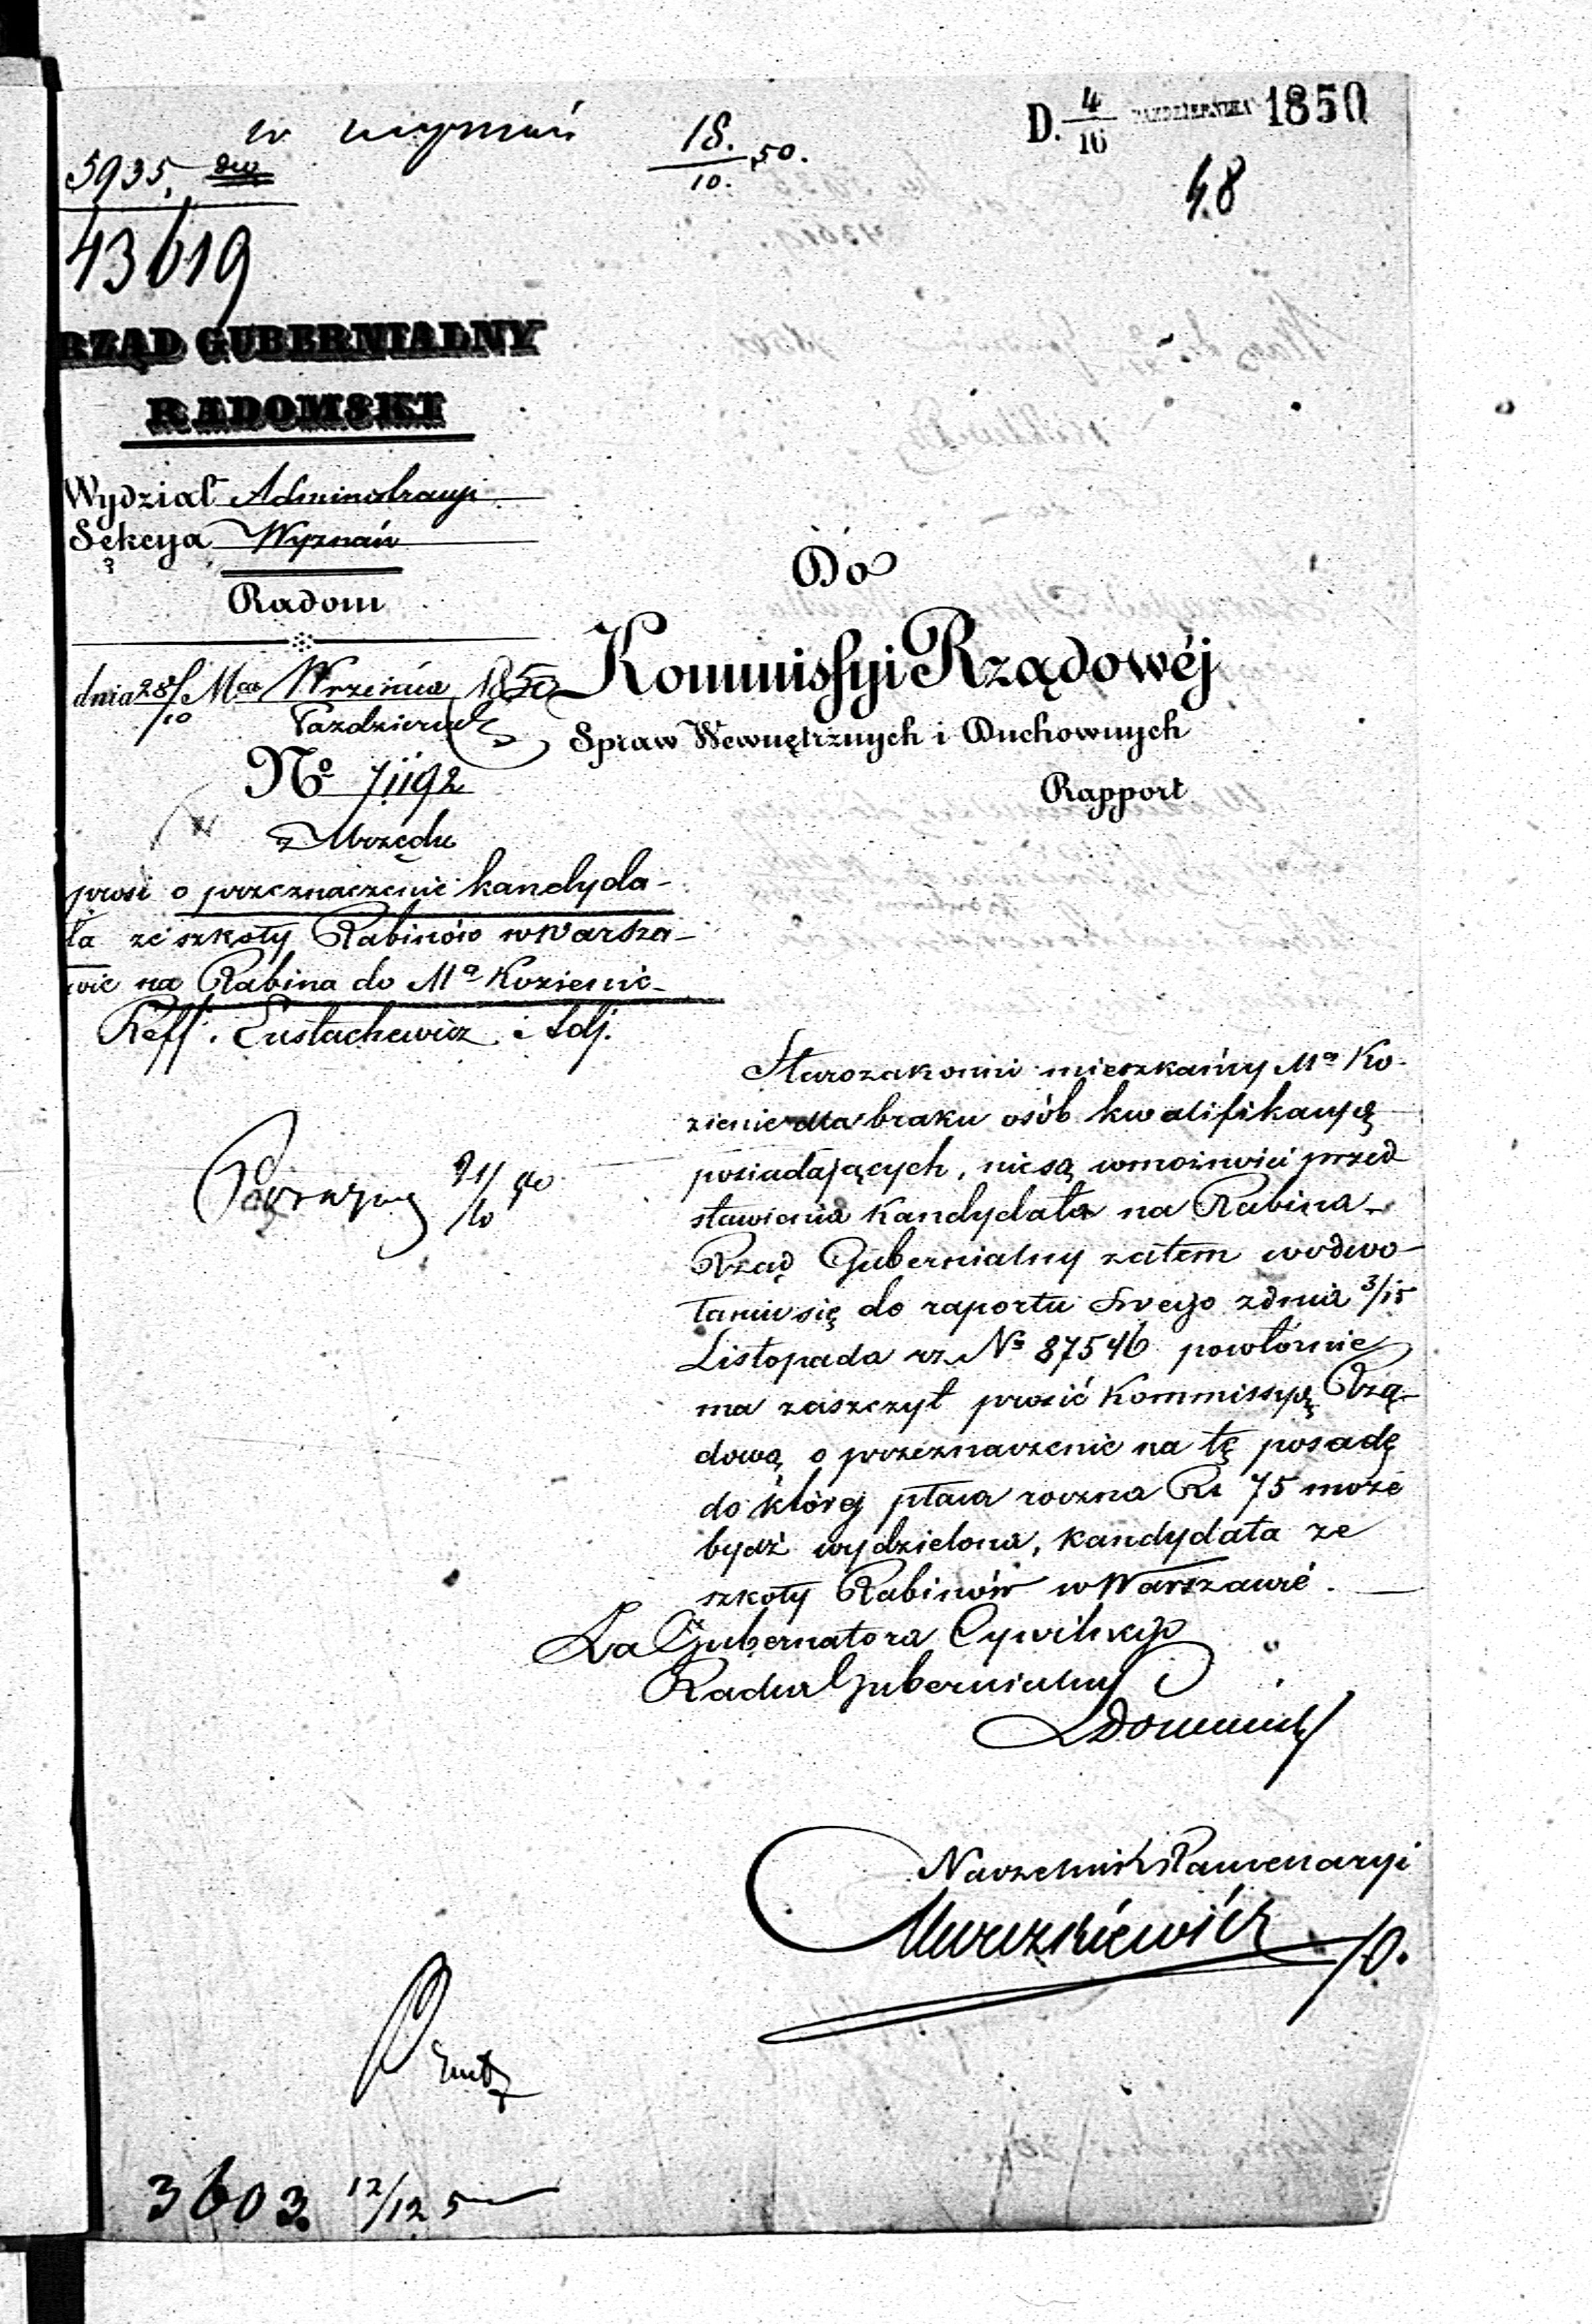 w wyznań
18./10. 50.
D. 4/16 PAŹDZIERNIKA 1850
48
5935.
43619
RZĄD GUBERNIALNY
RADOMSKI
Wydział Administracyi
Sekcya Wyznań
Radom
dnia 28/10 Mca Września 1850
Październ
Do
Kommissyi Rządowéj
Spraw Wewnętrznych i Duchownych
Rapport
No 71192
z Urzędu
prosi o przeznaczenie kandyda-
ta ze szkoły Rabinów w Warsza-
wie na Rabina do Ma Kozienic
Reff. Eustachewicz i Adj.
Starozakonni mieszkańcy Ma Ko-
zienic dla braku osób kwalifikacyą
posiadających, nie są w możności przed
stawienia Kandydata na Rabina
Rząd Gubernialny zatem w odwo-
łaniu się do raportu swego z dnia 3/15
Listopada rz. No 87546 powtórnie
ma zaszczyt prosić Kommissyą Rzą-
dową o przeznaczenie na tę posadę
do któréj płaca roczna Rs 75 może
bydź wydzielona, kandydata ze
szkoły Rabinów w Warszawie.
Za Gubernatora Cywilnego
Radca Gubernialny
Naczelnik Kancellaryi
3603. 12/12 5